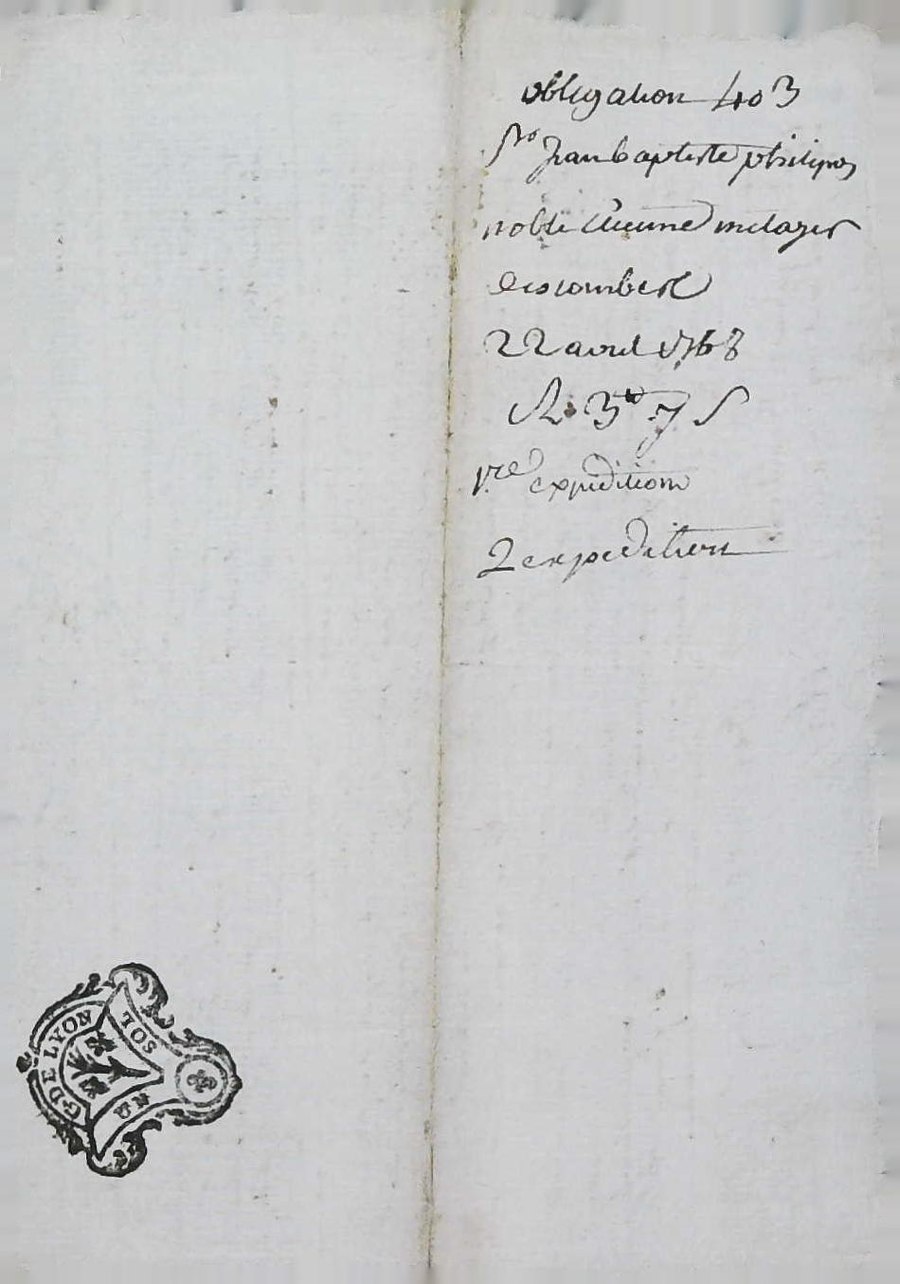 obligation 403
Sr Jean baptiste philipon
noble Etienne metayer
22 avril 1768
R 3# 7 s
1re expedition
2 expedition
G. DE LYON
UN SOL